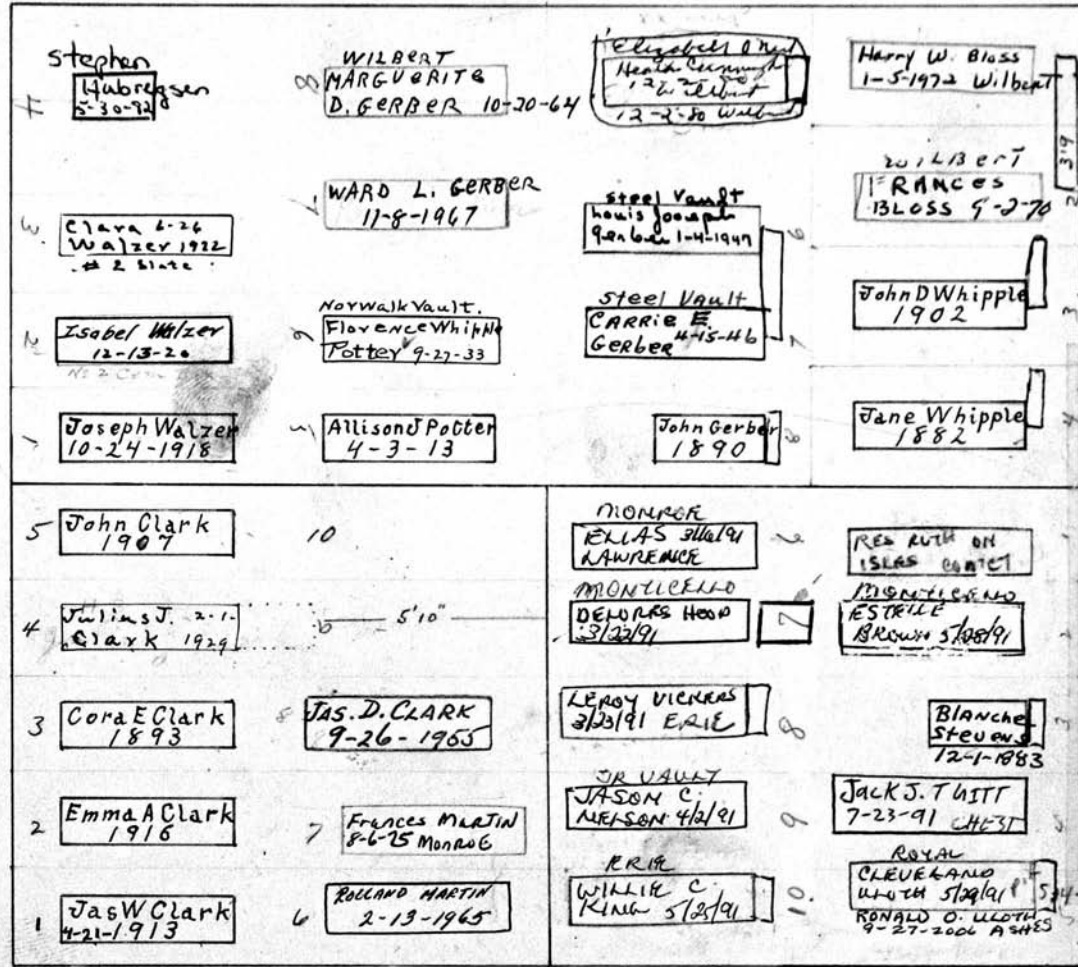 stephen
Hubregsen
5-30-92
4
WILBERT
MARGUERITE
D. GERBER 10-20-64
8
Elizabeth
12-2-80 Wilbert
Harry W. Bloss
1-5-1972 Wilbert
3'9
Clara 6-26
Walzer 1922
# 2 Slate
3
WARD L. GERBER
11-8-1967
7
steel Vault
Louis Joseph
Gerber 1-4-1947
6
WILBERT
FRANCES
BLOSS 9-2-70
2
Isabel Walzer
12-13-20
2
Norwalk Vault.
Florence Whipple
Potter 9-27-33
6
Steel Vault
CARRIE E
GERBER 4-15-46
7
John D Whipple
1902
3
Joseph Walzer
10-24-1918
1
Allison J Potter
4-3-13
5
John Gerber
1890
8
Jane Whipple
1882
4
5
John Clark
1907
10
MONROE
ELIAS
LAWRENCE
6
4
Julius J. 2-1-
Clark 1929
5'10"
MONTICELLO
DELORES HOOD
3/22/91
7
MONTICELLO
ESTELLE
BROWN 5/28/91
3
Cora E Clark
1893
8
JAS. D. CLARK
9-26-1955
LEROY VICKERS
3/23/91 ERIE
8
Blanche
Stevens
12-1-1883
2
Emma A Clark
1916
7
Frances Martin
8-6-75 Monroe
JR VAULT
JASON C.
NELSON 4/2/91
9
Jack J.
7-23-91 CHEST
1
Jas W Clark
4-21-1913
6
ROLLAND MARTIN
2-13-1965
ERIE
WILLIE C.
KING 5/25/91
10
ROYAL
CLEVELAND
5/29/91
RONALD O.
9-27-2006 ASHES